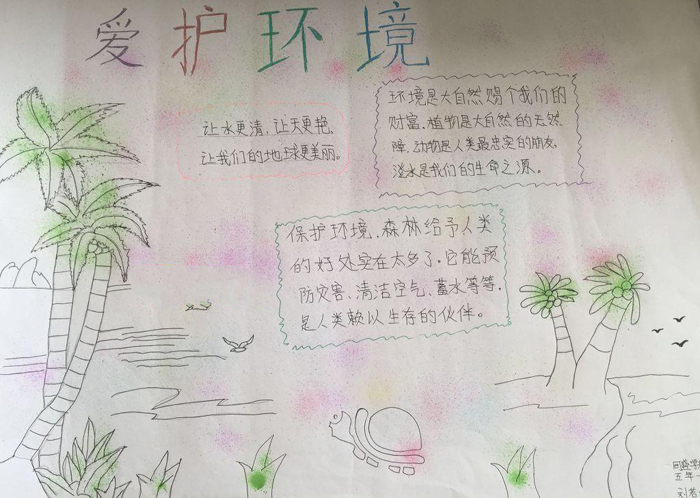 爱护环境
让水更清，让天更艳，
让我们的地球更美丽。
环境是大自然赐个我们的
财富，植物是大自然的天然
障，动物是人类最忠实的朋友，
淡水是我们的生命之源。
保护环境，森林给予人类
的好处实在太多了。它能预
防灾害、清洁空气、蓄水等等，
是人类赖以生存的伙伴。
五年一